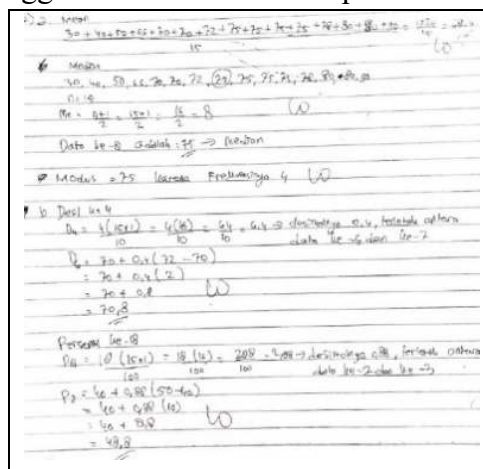 2. Mean
30 + 40 + 50 + 65 + 70 + 70 + 72 + 75 + 75 + 75 + 75 + 78 + 80 +
15
Median
30, 40, 50, 65, 70, 70, 72, 75, 75, 75, 78, 80,
n = 15
Me = = = 16/2 = 8
Data ke-8 adalah : 75 → median
Modus = 75 karena Frekuensinya 4
b Desil ke 4
D4 = 4(15+1)/10 = 4(16)/10 = 64/10 = 6,4 → desimalnya 0,4, terletak antara
data ke-6 dan ke-7
= 70 + 0,4 (72 - 70)
= 70 + 0,4 (2)
= 70 + 0,8
= 70,8
Persentil ke-18
= 18 (15+1)/100 = 18 (16)/100 = → desimalnya terletak antara
data ke-2 dan ke-3
= 40 + 0,88 (50-40)
= 40 + 0,88 (10)
= 40 + 8,8
= 48,8